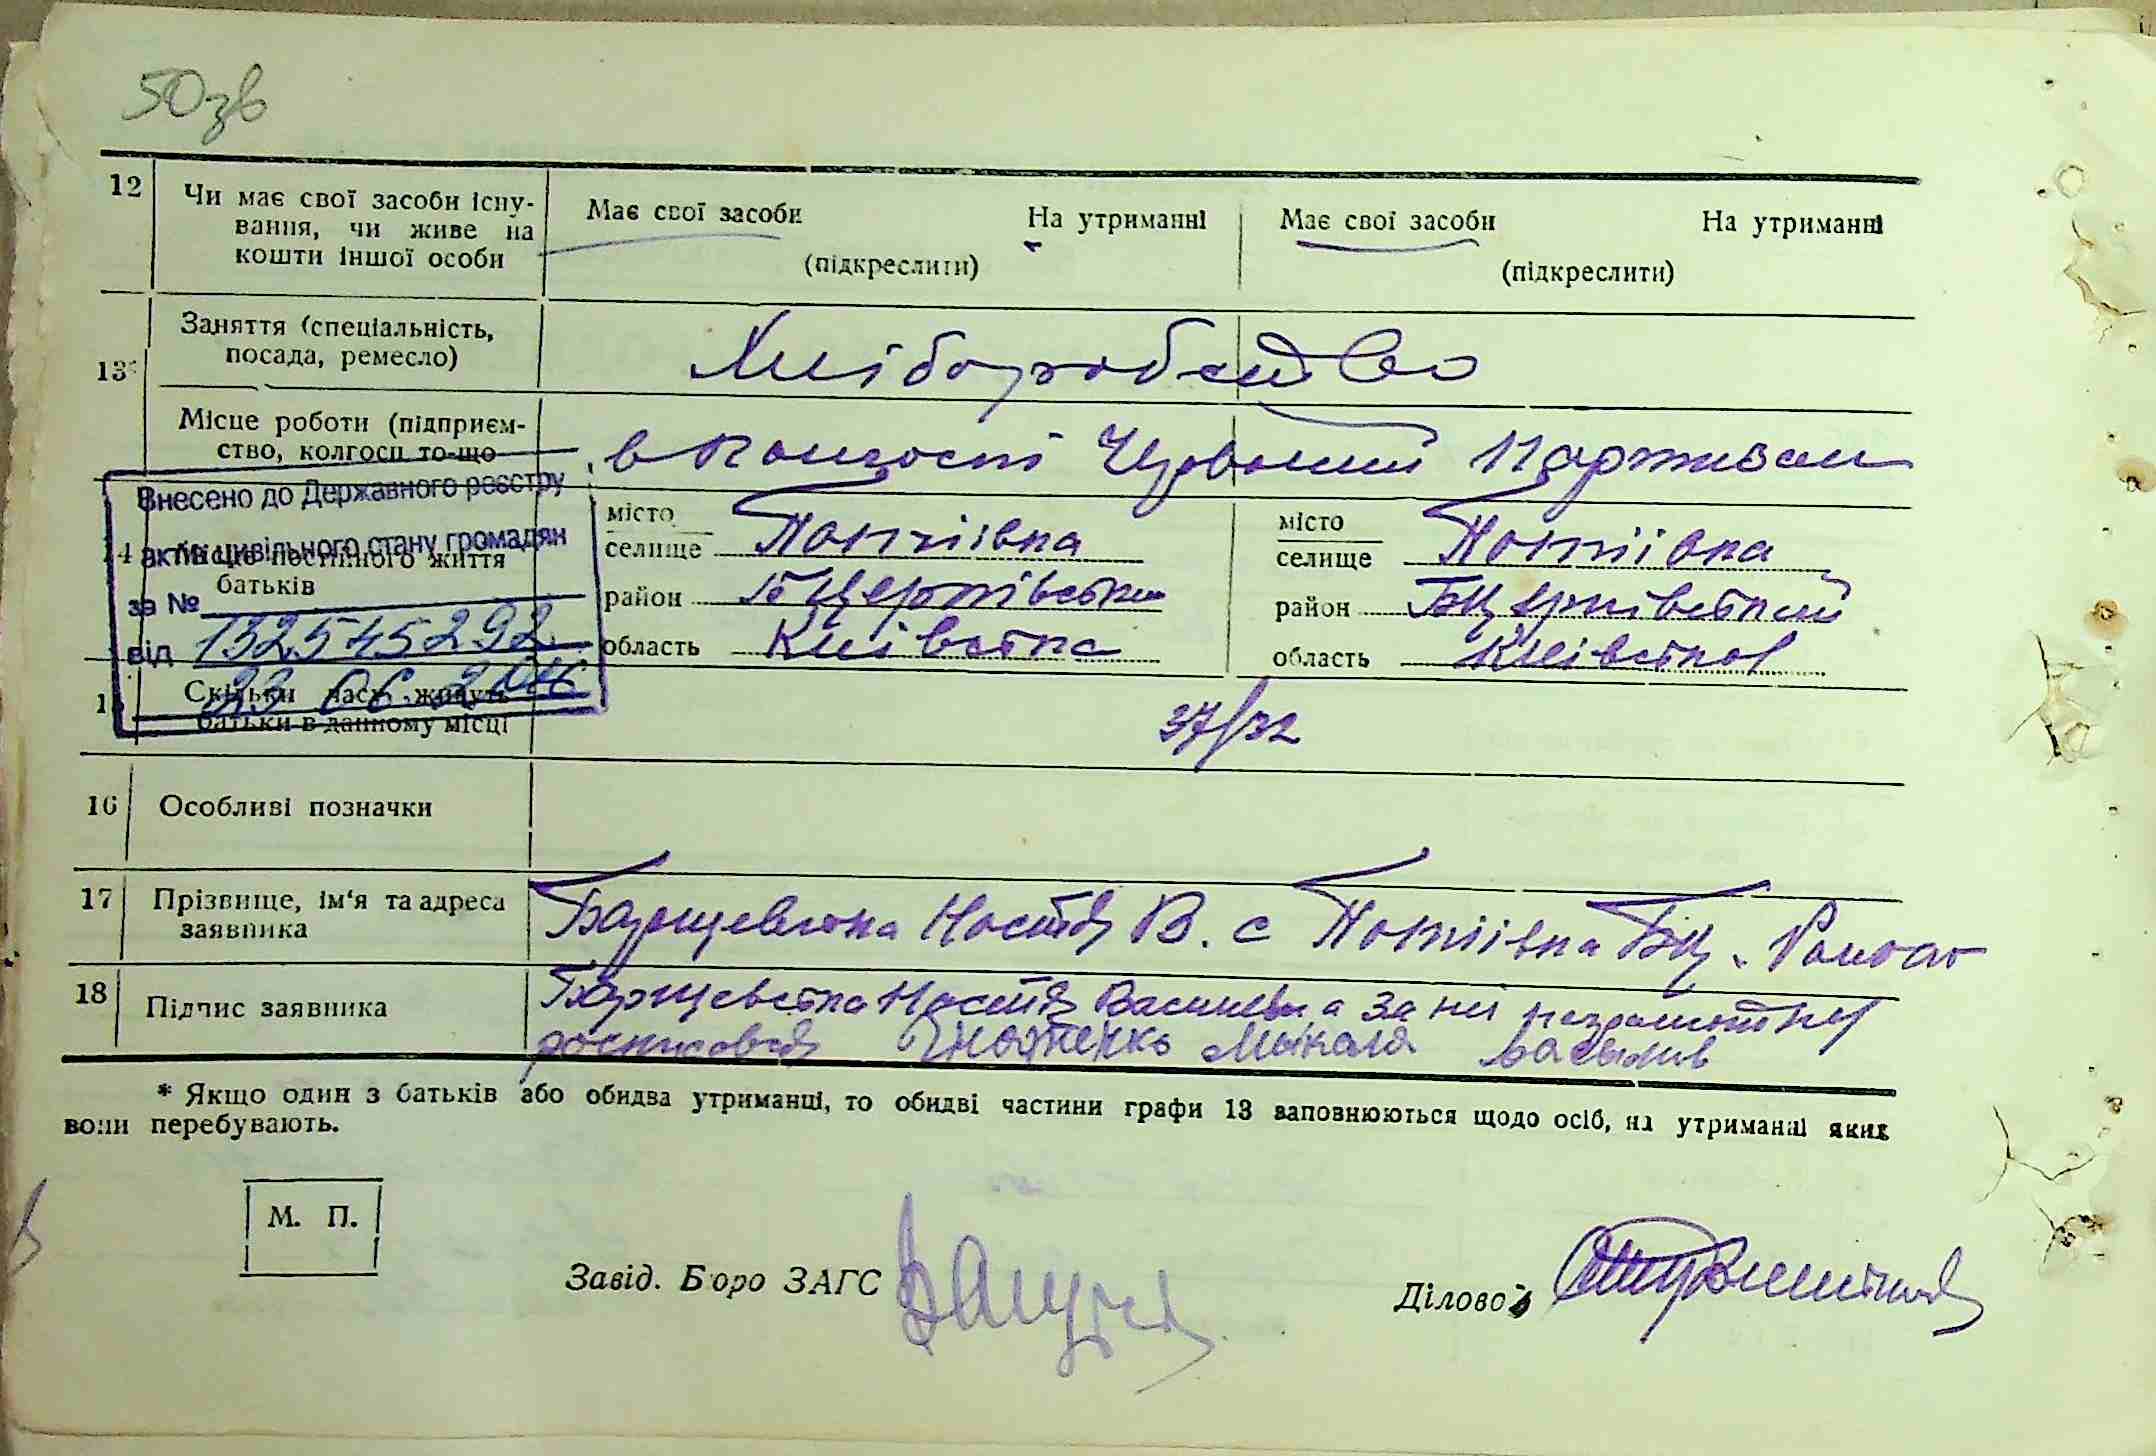 50зв
12 Чи має свої засоби існу-
вання, чи живе на
кошти іншої особи
Має свої засоби На утриманні
(підкреслити)
Має свої засоби На утриманні
(підкреслити)
13 Заняття (спеціальність,
посада, ремесло)
Хліборобство
Місце роботи (підприєм-
ство, колгосп то-що
в колгоспі Червоний Партизан
Внесено до Державного реєстру
актів цивільного стану громадян
за №
від 132545292
23 06 20
14 Місце постійного життя
батьків
місто
селище Потіївка
район БЦерківський
область Київська
місто
селище Потіївка
район БЦерківський
область Київська
Скільки часу живуть
батьки в данному місці
37/32
16 Особливі позначки
17 Прізвище, ім'я та адреса
заявника
Барщевська Настя В. с Потіївка БЦ.
18 Підпис заявника
Барщевська Настя Василівна за неї неграмотну
росписався Микола
* Якщо один з батьків або обидва утриманці, то обидві частини графи 13 заповнюються щодо осіб, на утриманні яких
вони перебувають.
М. П.
Завід. Бюро ЗАГС
Діловод